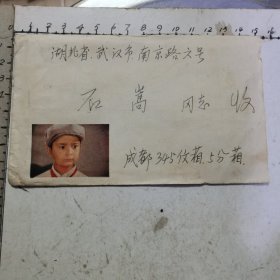 湖北省、武汉市南京路六号
石嵩 同志 收
成都345信箱.5分箱